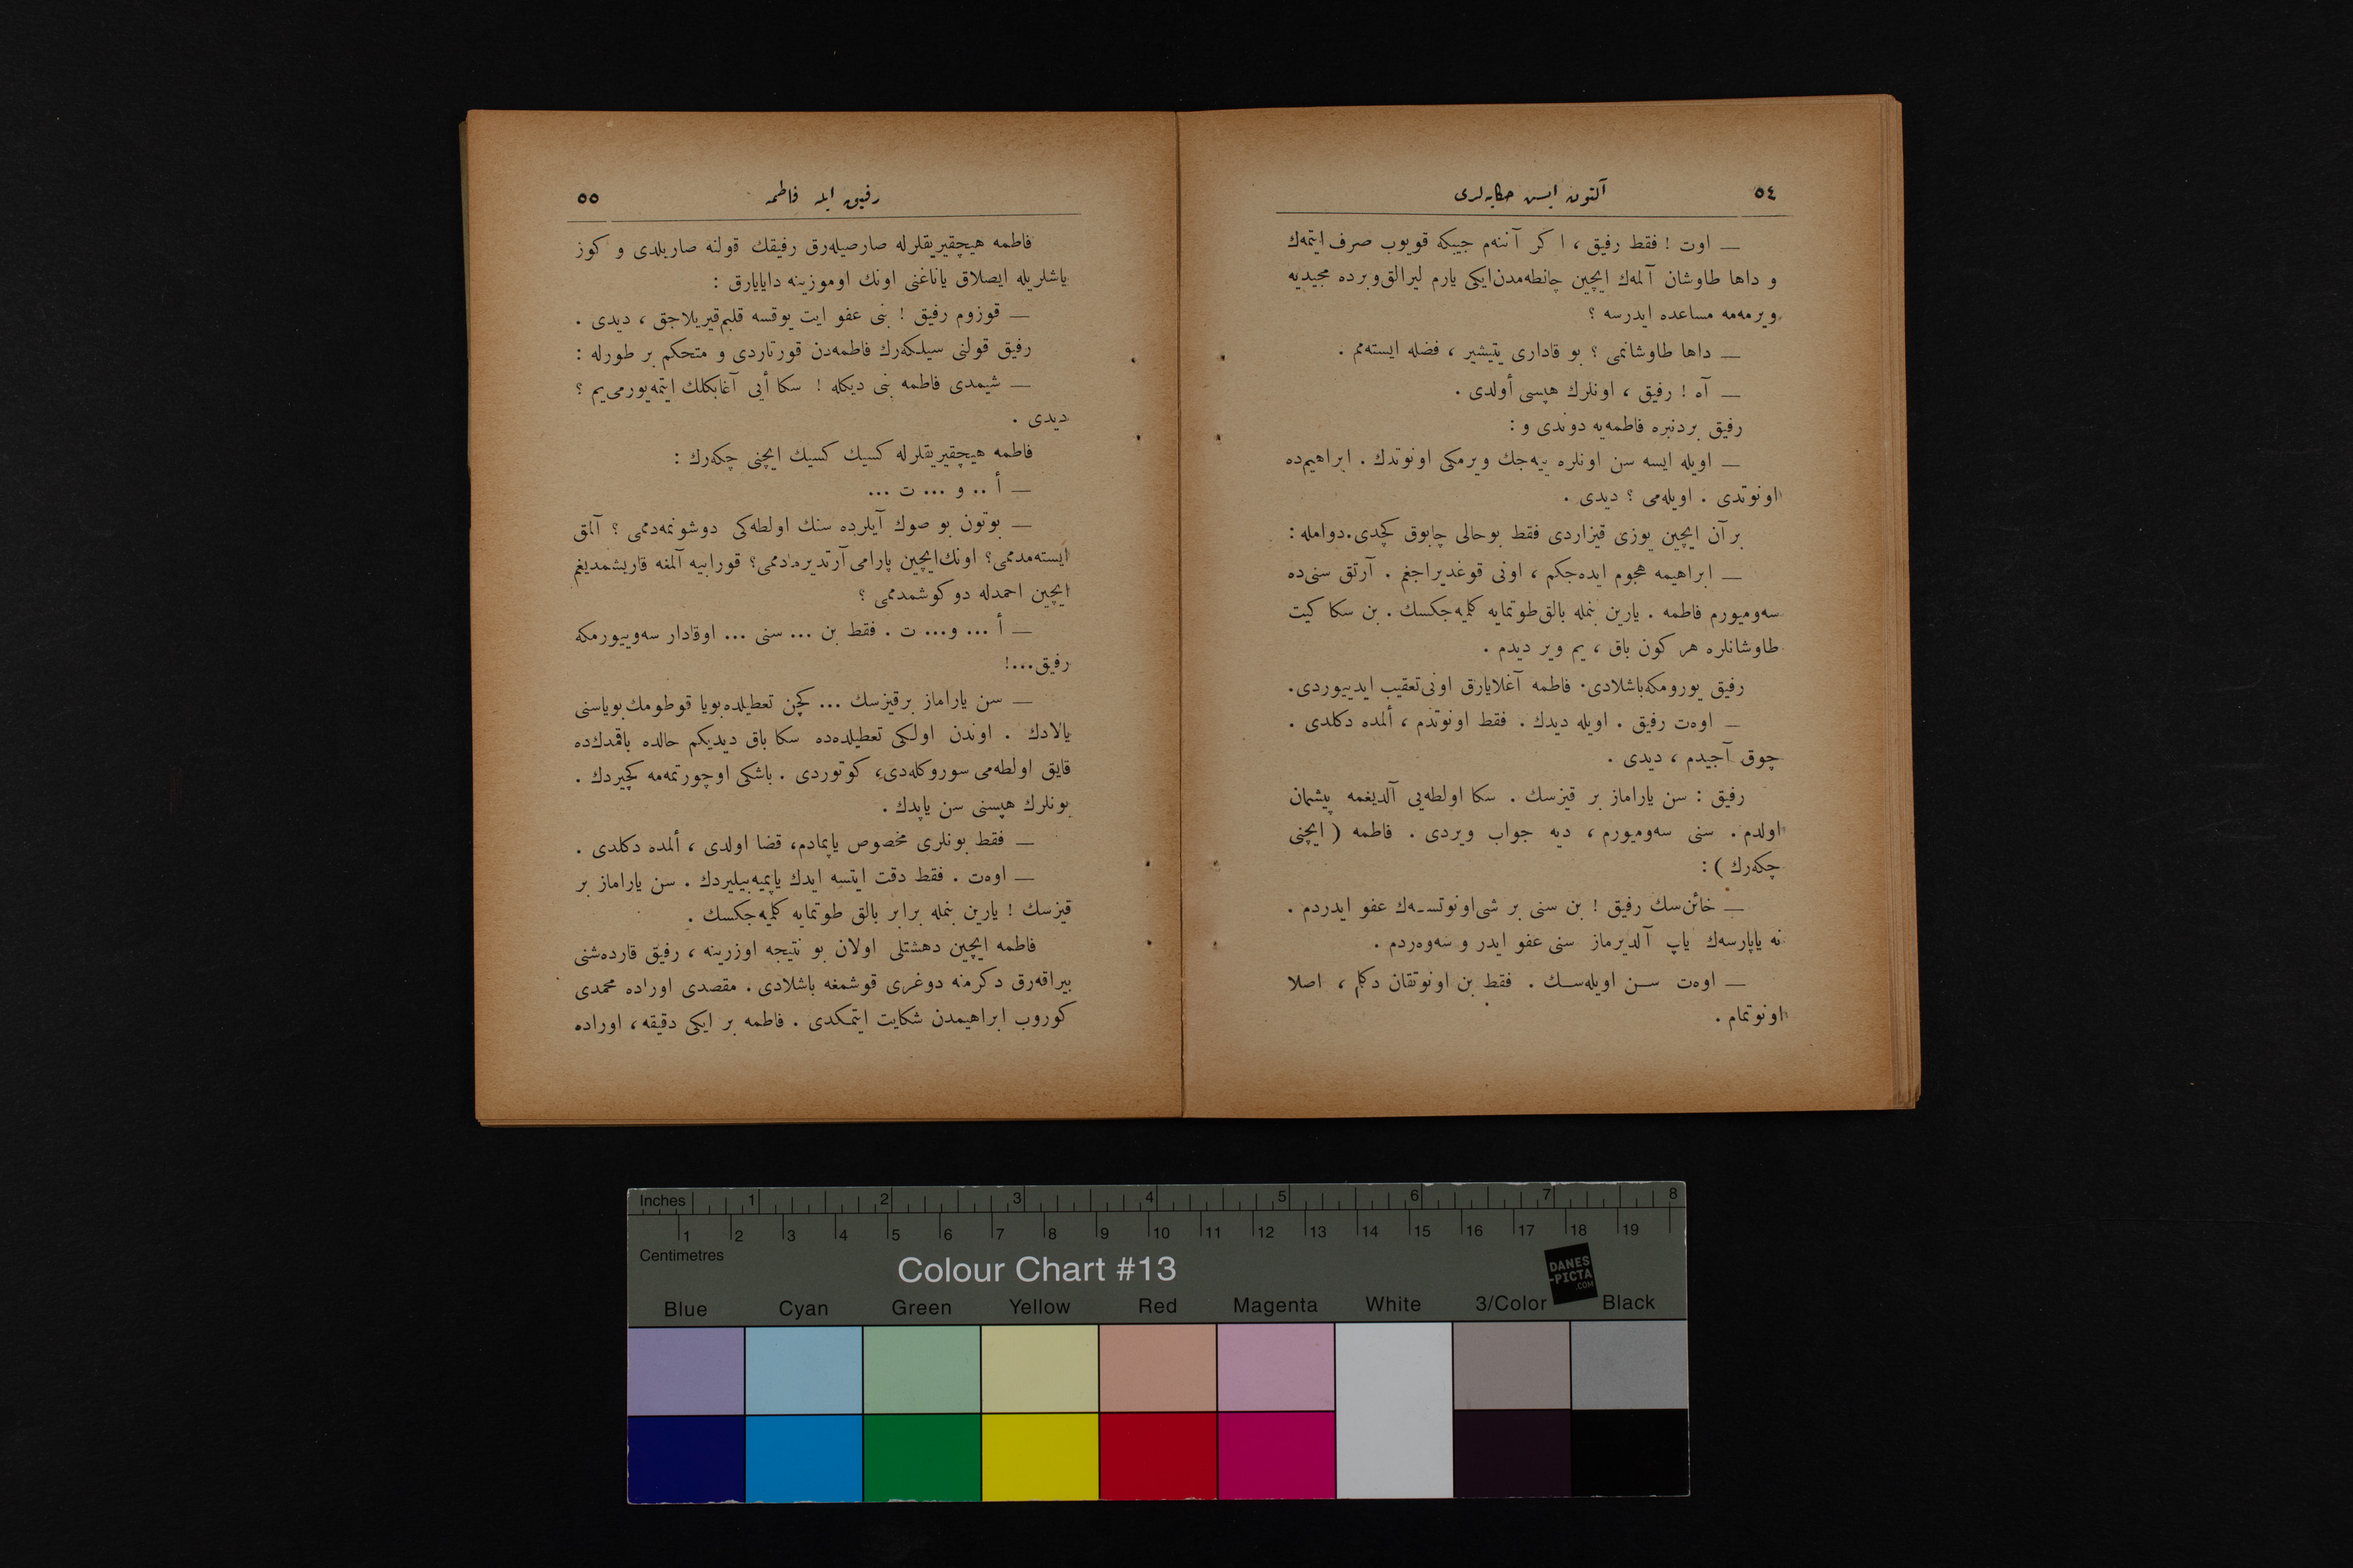 ٥٤ آلتون ايسن حكايه‌لرى
— اوت ! فقط رفيق ، ا كر آننه‌م جيبكه قويوب صرف ايتمه‌ك
و داها طاوشان آلمه‌ك ايچين چانطه‌مدن ايكى يارم ليرالق وبرده مجيديه
ويرمه‌مه مساعده ايدرسه ؟
— داها طاوشانمى ؟ بو قادارى يتيشير ، فضله ايسته‌مم .
— آه ! رفيق ، اونلرك هپسى أولدى .
رفيق بردنبره فاطمه‌يه دوندى و :
— اويله ايسه سن اونلره ييه‌جك ويرمكى اونوتدك . ابراهيم‌ده
اونوتدى . اويله‌مى ؟ ديدى .
بر آن ايچين يوزى قيزاردى فقط بو حالى چابوق كچدى. دوامله :
— ابراهيمه هجوم ايده‌جكم ، اونى قوغديراجغم . آرتق سنى‌ده
سه‌وميورم فاطمه . يارين بنمله بالق طوتمايه كليه‌جكسك . بن سكا كيت
طاوشانلره هر كون باق ، يم وير ديدم .
رفيق يورومكه باشلادى. فاطمه آغلايارق اونى تعقيب ايدييوردى.
— اوه‌ت رفيق . اويله ديدك . فقط اونوتدم ، ألمده دكلدى .
چوق آجيدم ، ديدى .
رفيق : سن ياراماز بر قيزسك . سكا اولطه‌يى آلديغمه پيشمان
اولدم . سنى سه‌وميورم ، ديه جواب ويردى . فاطمه ( ايچنى
چكه‌رك ) :
— خائن‌سك رفيق ! بن سنى بر شى اونوتسـه‌ك عفو ايدردم .
نه ياپارسه‌ك ياپ آلديرماز سنى عفو ايدر و سه‌وه‌ردم .
— اوه‌ت ســن اويله‌ســك . فقط بن اونوتقان دكلم ، اصلا
اونوتمام .
رفيق ايله فاطمه ٥٥
فاطمه هيچقيريقلرله صارصيله‌رق رفيقك قولنه صاريلدى و كوز
ياشلريله ايصلاق ياناغنى اونك اوموزينه دايايارق :
— قوزوم رفيق ! بنى عفو ايت يوقسه قلبم قيريلاجق ، ديدى .
رفيق قولنى سيلكه‌رك فاطمه‌دن قورتاردى و متحكم بر طورله :
— شيمدى فاطمه بنى ديكله ! سكا أيى آغابكلك ايتمه‌يورمى‌يم ؟
ديدى .
فاطمه هيچقيريقلرله كسيك كسيك ايچنى چكه‌رك :
— أ .. و ... ت ...
— بوتون بو صوك آيلرده سنك اولطه‌كى دوشونمه‌دممى ؟ آلمق
ايسته‌مدممى؟ اونك ايچين پارامى آرتديرمادممى؟ قورابيه آلمغه قاريشمديغم
ايچين احمدله دو كوشمدممى ؟
— أ ... و... ت . فقط بن ... سنى ... اوقادار سه‌وييورمكه
رفيق...!
— سن ياراماز برقيزسك ... كچن تعطيلده بويا قوطومك بوياسنى
يالادك . اوندن اولكى تعطيلده‌ده سكا باق ديديكم حالده باقمدك‌ده
قايق اولطه‌مى سوروكله‌دى، كوتوردى . باشكى اوچورتمه‌مه كچيردك .
بونلرك هپسنى سن ياپدك .
— فقط بونلرى مخصوص ياپمادم، قضا اولدى ، ألمده دكلدى .
— اوه‌ت . فقط دقت ايتسه ايدك ياپميه‌بيليردك . سن ياراماز بر
قيزسك ! يارين بنمله برابر بالق طوتمايه كليه‌جكسك .
فاطمه ايچين دهشتلى اولان بو نتيجه اوزرينه ، رفيق قارده‌شنى
بيراقه‌رق دكرمنه دوغرى قوشمغه باشلادى . مقصدى اوراده محمدى
كوروب ابراهيمدن شكايت ايتمكدى . فاطمه بر ايكى دقيقه ، اوراده
Inches 1 2 3 4 5 6 7 8
1 2 3 4 5 6 7 8 9 10 11 12 13 14 15 16 17 18 19
Centimetres
Colour Chart #13
DANES
-PICTA
.COM
Blue Cyan Green Yellow Red Magenta White 3/Color Black